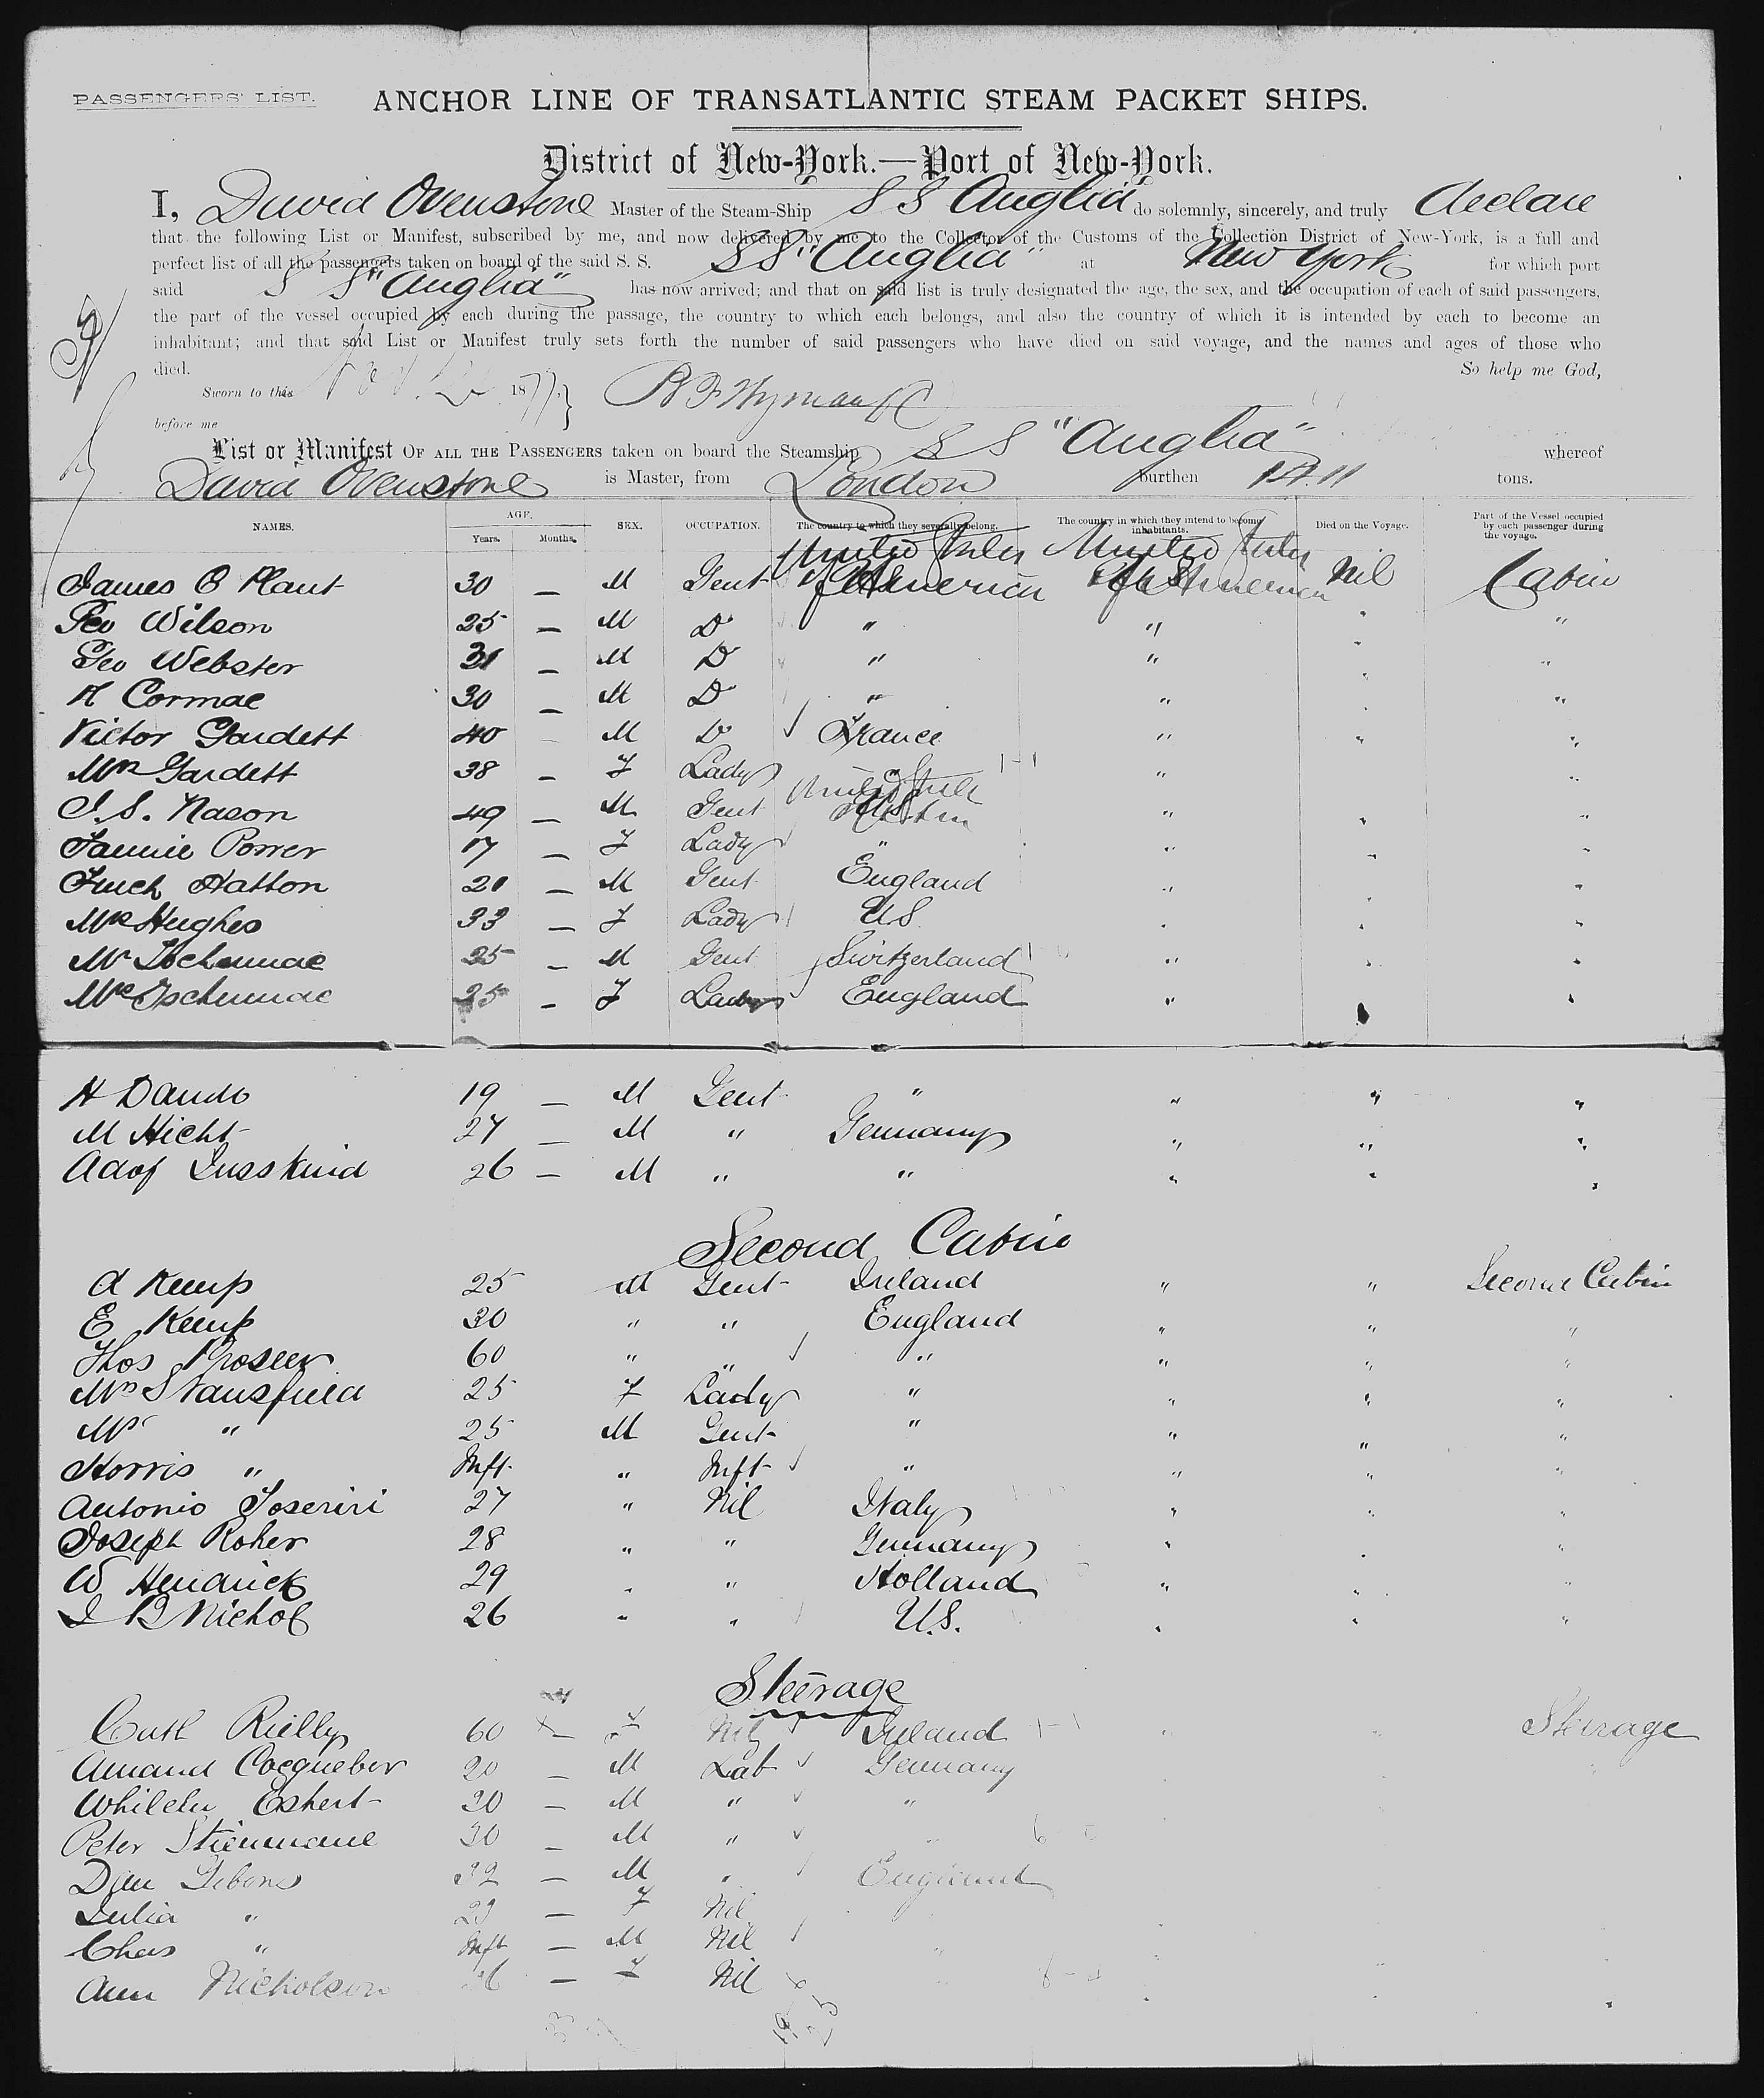 PASSENGERS' LIST.
ANCHOR LINE OF TRANSATLANTIC STEAM PACKET SHIPS.
District of New-York.—Port of New-York.
I, David Ovenstone Master of the Steam-Ship S S Anglia do solemnly, sincerely, and truly declare
that the following List or Manifest, subscribed by me, and now delivered by me to the Collector of the Customs of the Collection District of New-York, is a full and
perfect list of all the passengers taken on board of the said S. S. SS "Anglia" at New York for which port
said S S "Anglia" has now arrived; and that on said list is truly designated the age, the sex, and the occupation of each of said passengers,
the part of the vessel occupied by each during the passage, the country to which each belongs, and also the country of which it is intended by each to become an
inhabitant; and that said List or Manifest truly sets forth the number of said passengers who have died on said voyage, and the names and ages of those who
died. So help me God,
Sworn to this Nov. 1877
before me
List or Manifest OF ALL THE PASSENGERS taken on board the Steamship S S "Anglia" whereof
David Ovenstone is Master, from London burthen tons.
NAMES. AGE. Years. Months. SEX. OCCUPATION. The country to which they severally belong. The country in which they intend to become inhabitants. Died on the Voyage. Part of the Vessel occupied by each passenger during the voyage.
United States United States
James B Plant 30 — M Gent of America of America Nil Cabin
Geo Wilson 25 — M Do " " " "
Geo Webster 31 — M Do " " " "
H Cormac 30 — M Do " " " "
Victor Gardett 40 — M Do France " " "
Mrs Gardett 38 — F Lady " " " "
J. S. Nason 49 — M Gent United States " " "
Fannie Porrer 17 — F Lady " " " "
Finch Hatton 20 — M Gent England " " "
Mrs Hughes 33 — F Lady U S " " "
Mr 25 — M Gent Switzerland " " "
Mrs 25 — F Lady England " " "
H Dando 19 — M Gent " " " "
M Hicht 27 — M " Germany " " "
Adof Susskind 26 — M " " " " "
Second Cabin
A Kemp 25 M Gent Ireland " " Second Cabin
E Kemp 30 " " England " " "
Thos Prosser 60 " " " " " "
Mrs Stansfield 25 F Lady " " " "
Mr " 25 M Gent " " " "
Horris " Inft " Inft " " " "
Antonio 27 " Nil Italy " " "
Joseph Roher 28 " " Germany " " "
W Hendrick 29 " " Holland " " "
J B Nichol 26 " " U.S. " " "
Steerage
Cath Rielly 60 — F Nil Ireland " " Steerage
Amand Cocquebor 20 — M Lab Germany
Whilelm Eshert 30 — M " "
Peter Stienmane 30 — M " "
Dan Gibons 32 — M " England
Julia " 29 — F Nil
Chas " Inft — M Nil
Ann Nicholson — F Nil